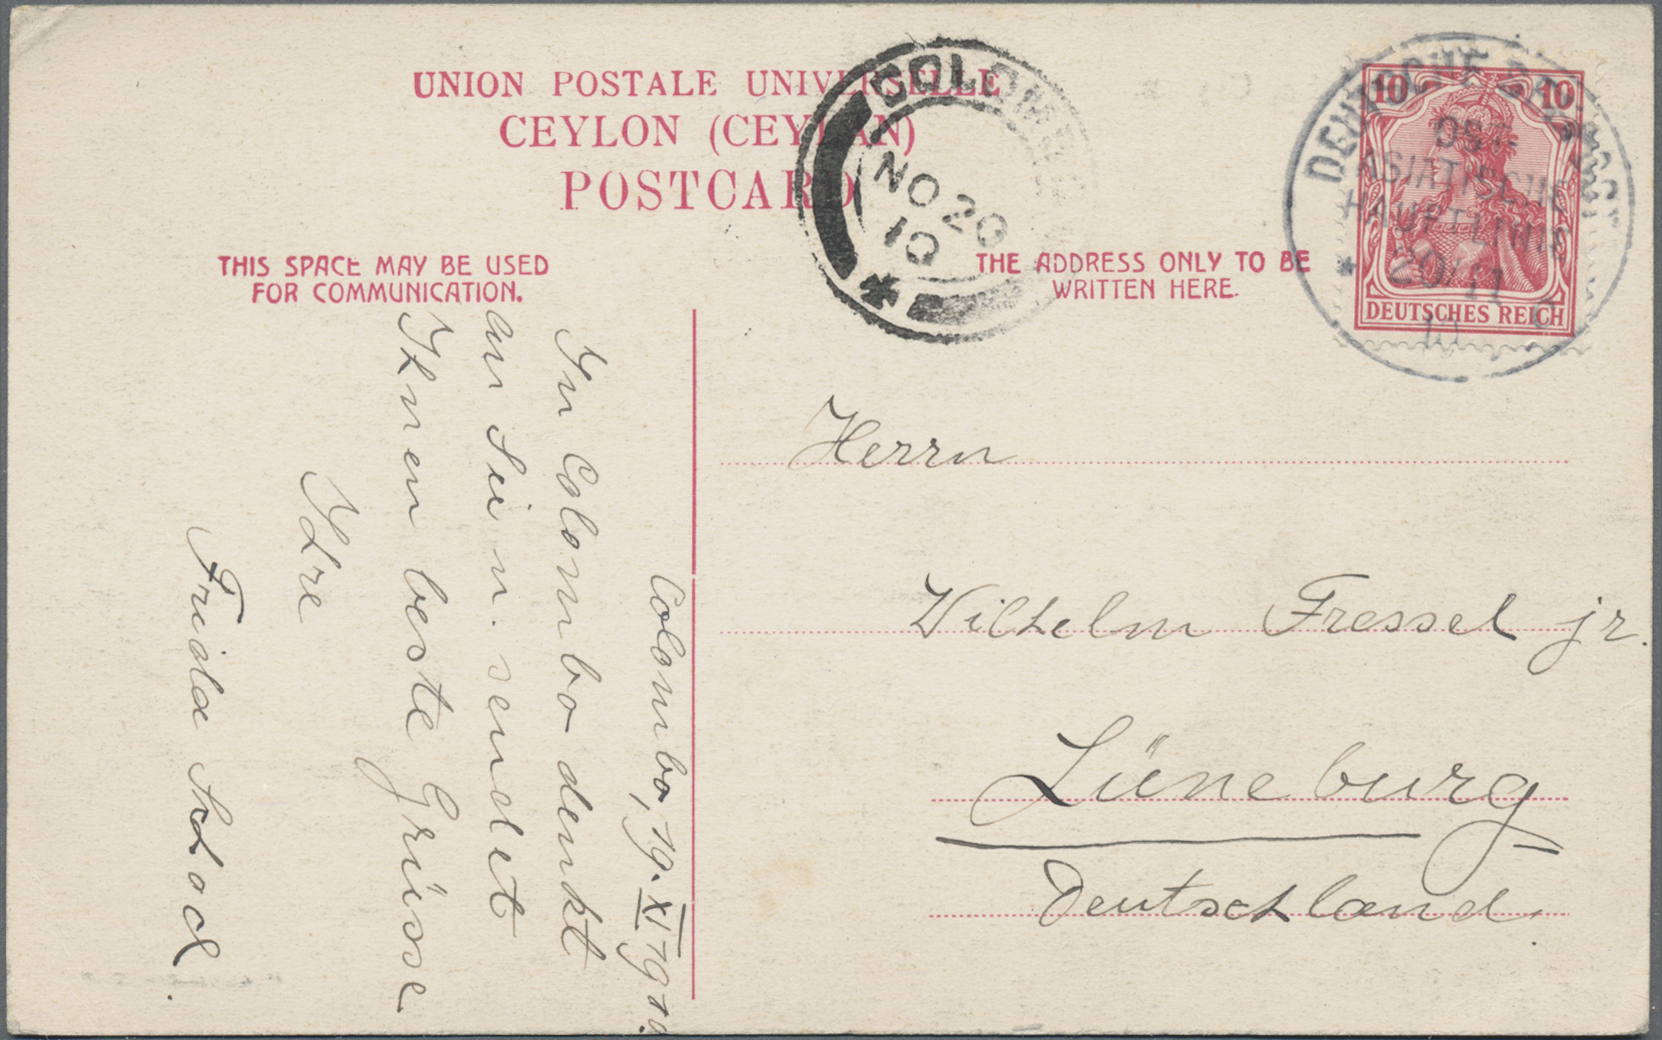 UNION POSTALE UNIVERSELLE
CEYLON (CEYLAN)
POSTCARD
THIS SPACE MAY BE USED
FOR COMMUNICATION.
THE ADDRESS ONLY TO BE
WRITTEN HERE.
COLOMBO
NO 20
10
10 10
DEUTSCHES REICH
DEUTSCHE SEEPOST
OST-
ASIATISCHE
HAUPTLINIE
20/11
10
Colombo, 19. XI 1910.
In Colombo denkt
an Sie u. sendet
Ihnen beste Grüsse
Ihre
Frida Schod.
Herrn
Wilhelm Fressel jr.
Lüneburg
Deutschland.